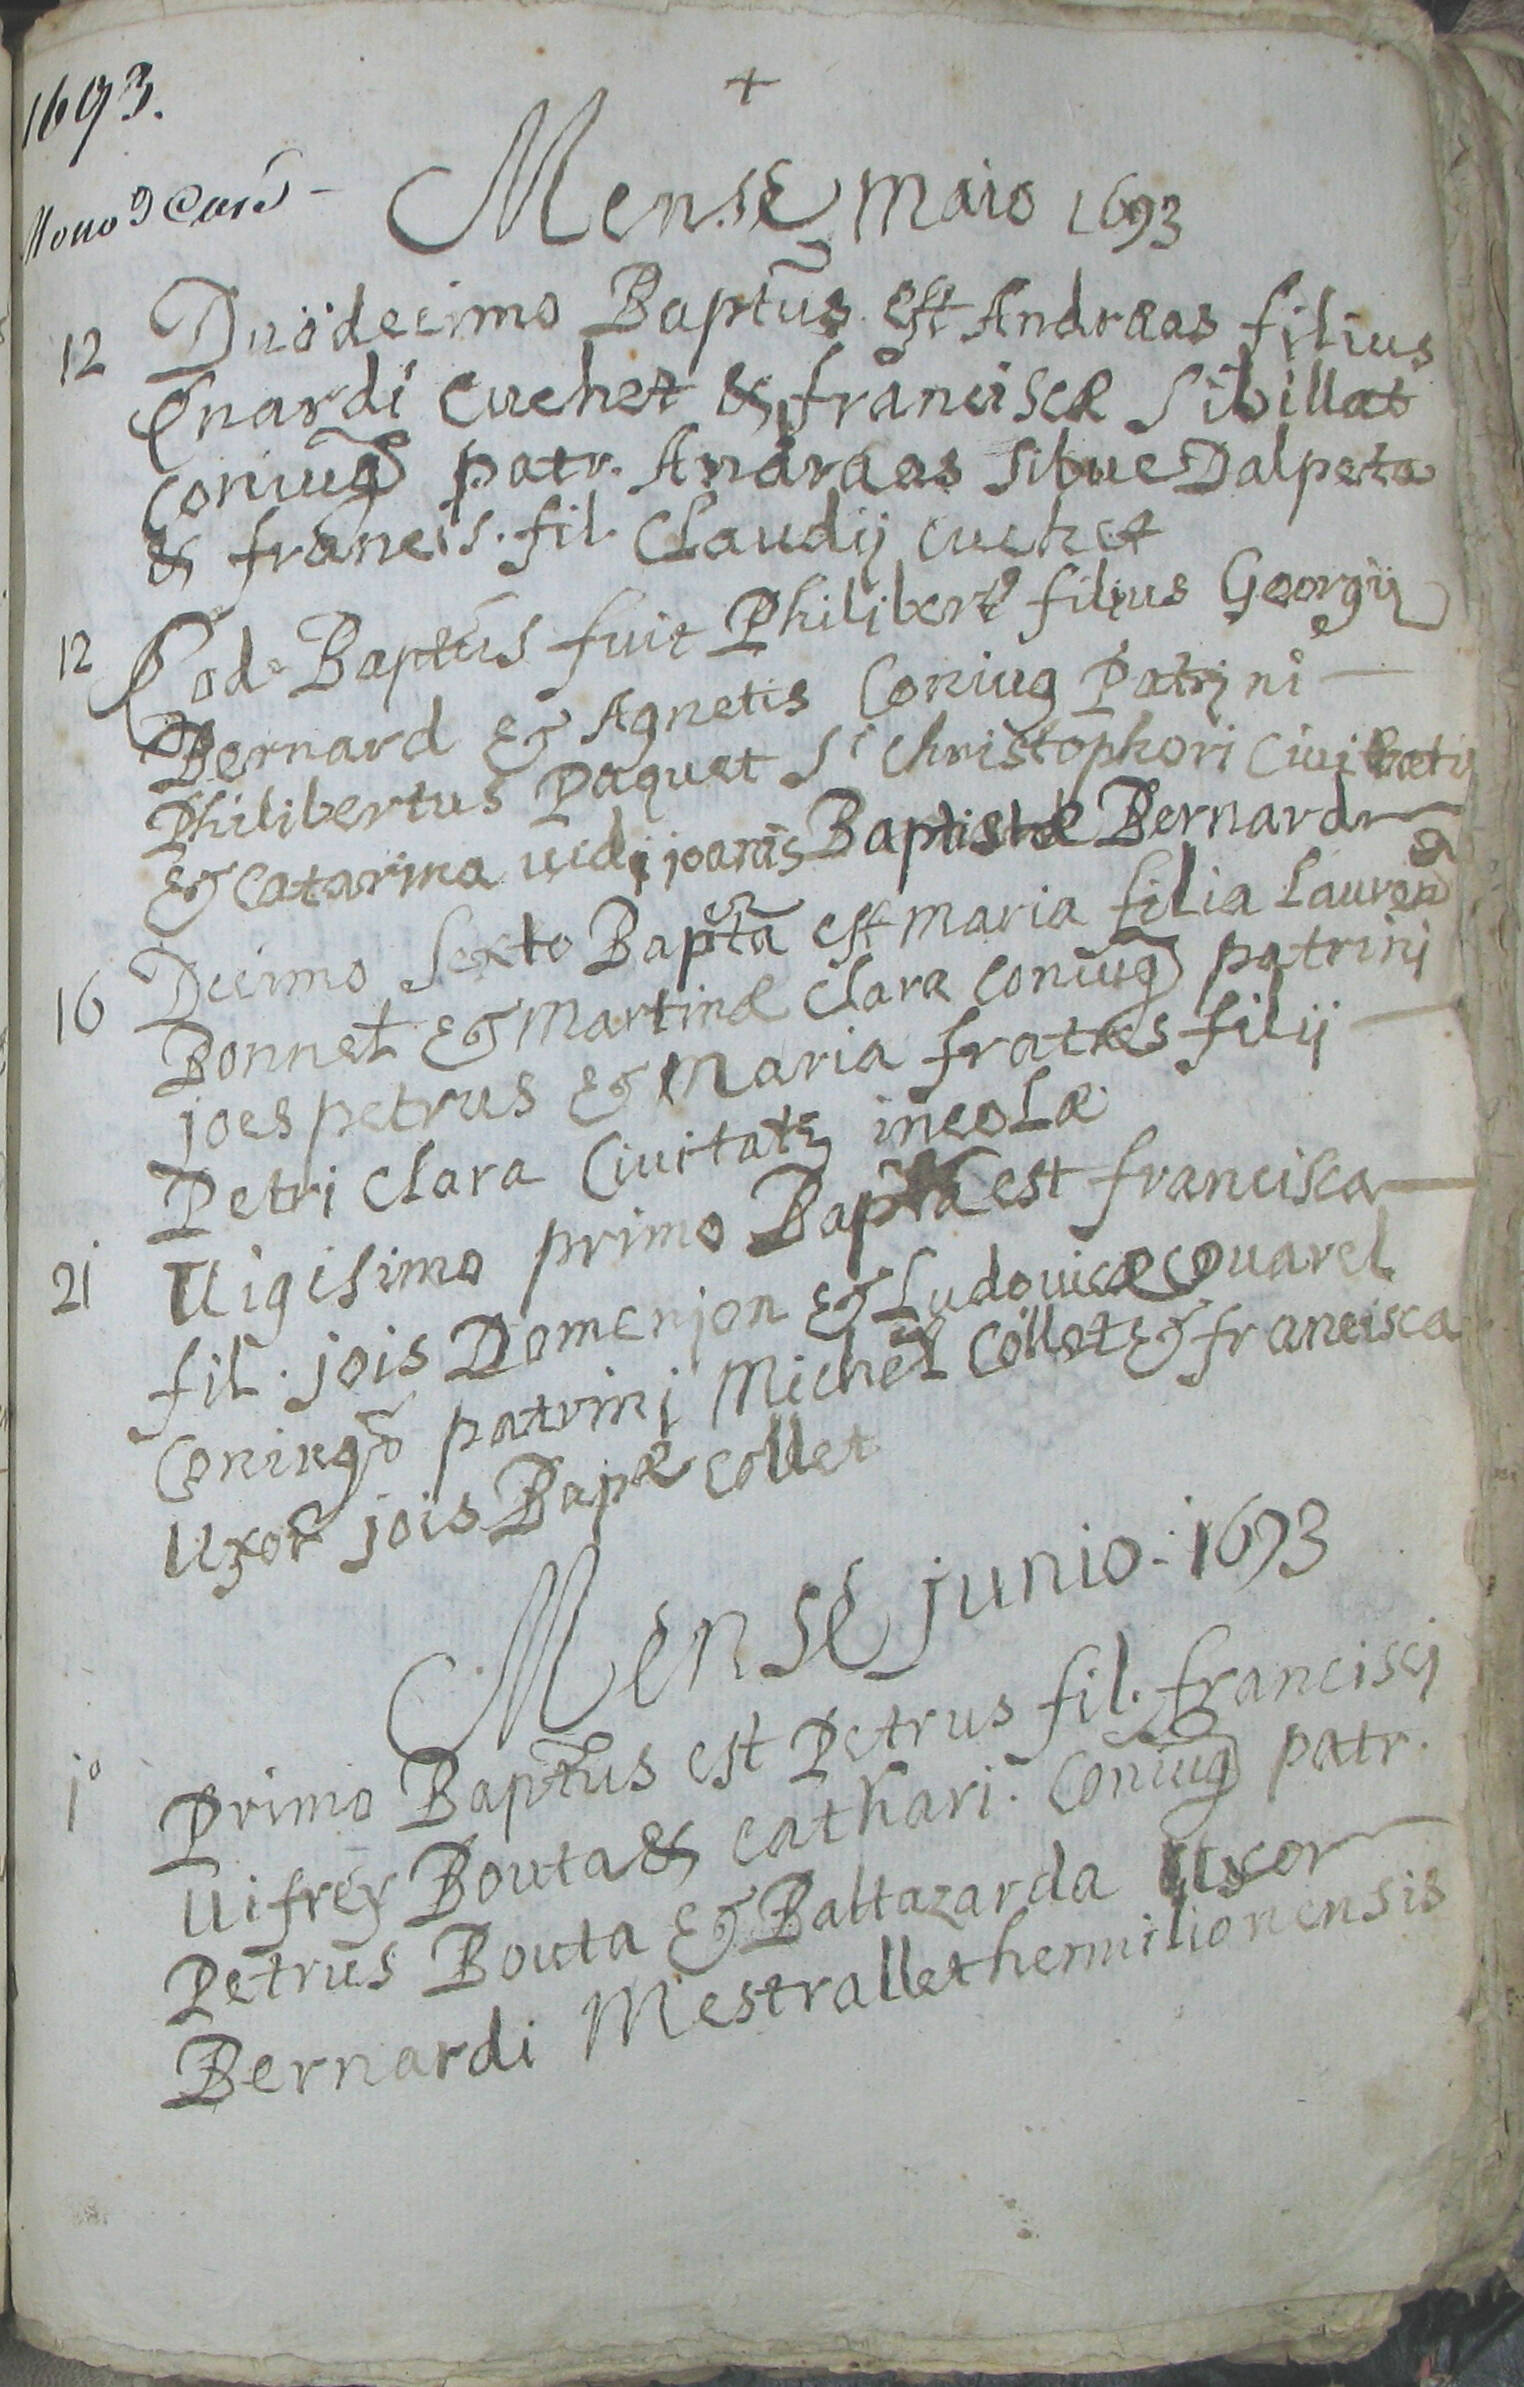 1693.
+
Mense Maio 1693
12 Duodecimo Baptus est Andraas filius
Enardi Cuchet & franciscæ Sibillat
Coniug patr. Andraas Silue Dalpeta
& francis. fil. Claudij cuchet
12 Eod. Baptus fuit Philibert9 filius Georgij
Bernard & Agnetis Coniug Patrini
Philibertus Paquet Sti Christophori Ciuitatis
& Catarina uid joanis Baptistæ Bernard
16 Decimo Sexto Bapta est Maria filia Lauren
Bonnet & Martinæ Clara Coniug patrinj
joes petrus & Maria fratres filij
Petri Clara Ciuitatis incolæ
21 Uigisimo primo Bapta est francisca
fil. jois Domenjon & Ludouicæ Couarel
Coniug patrinj Michel Collet & francisca
Uxor jois Bapæ collet
Mense junio. 1693
jo Primo Baptus est Petrus fil. franciscj
Uifrey Bouta & cathari. Coniug patr.
Petrus Bouta & Baltazarda Uxor
Bernardi Mestrallet hermilionensis